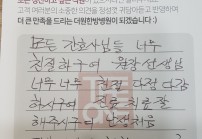 고객 여러분의 소중한 의견을 귀담아듣고 반영하여
더 큰 만족을 드리는 더원한방병원이 되겠습니다!
모든 간호사님들 너무
친절하구여 원장선생님
너무너무 친절 다정 다감
하시구여 진료 치료 잘
해주시구여 남